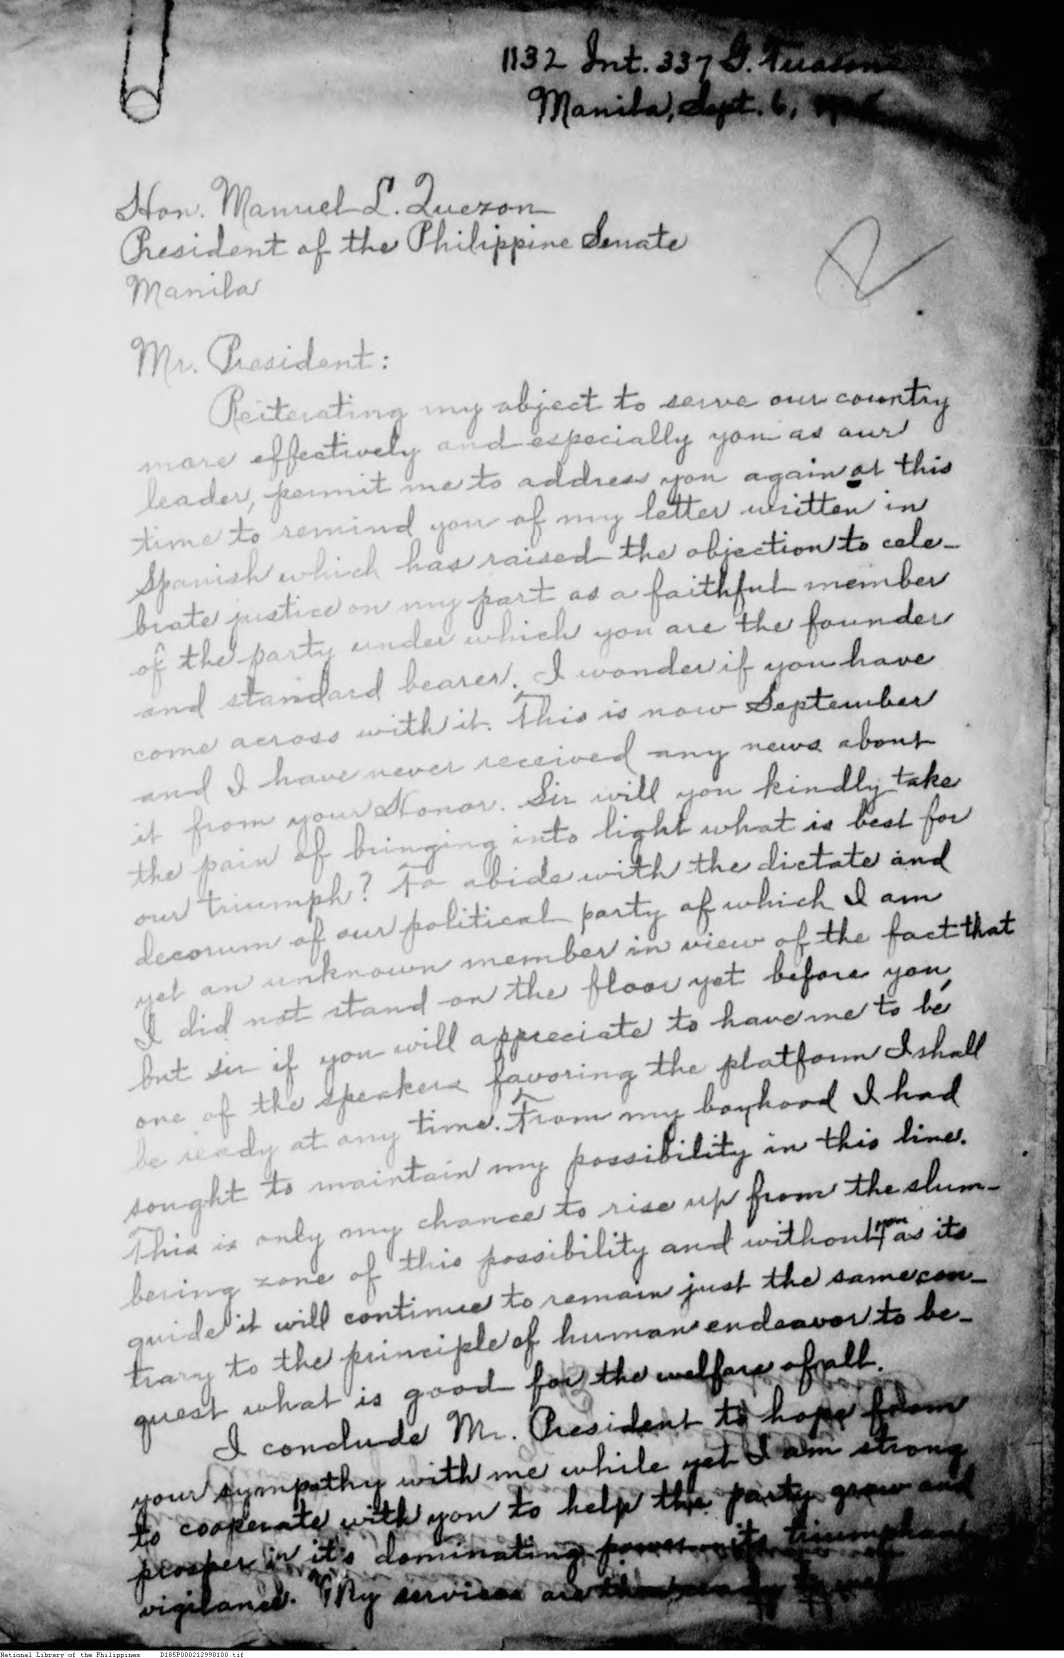 1132 Int. 337 G. Tuason
Manila, Sept. 6,
Hon. Manuel L. Quezon
President of the Philippine Senate
Manila
Mr. President:
Reiterating my object to serve our country
more effectively and especially you as our
leader, permit me to address you again at this
time to remind you of my letter written in
Spanish which has raised the objection to cele-
brate justice on my part as a faithful member
of the party under which you are the founder
and standard bearer. I wonder if you have
come across with it. This is now September
and I have never received any news about
it from your Honor. Sir will you kindly take
the pain of bringing into light what is best for
our triumph? To abide with the dictate and
decorum of our political party of which I am
yet an unknown member in view of the fact that
I did not stand on the floor yet before you,
but sir if you will appreciate to have me to be
one of the speakers favoring the platform I shall
be ready at any time. From my boyhood I had
sought to maintain my possibility in this line.
This is only my chance to rise up from the slum-
bering zone of this possibility and without you as its
guide it will continue to remain just the same con-
trary to the principle of human endeavor to be-
quest what is good for the welfare of all.
I conclude Mr. President to hope from
your sympathy with me while yet I am strong
to cooperate with you to help the party grow and
prosper in it's dominating power its triumphant
vigilance. My services are
National Library of the Philippines D185P000212998100.tif